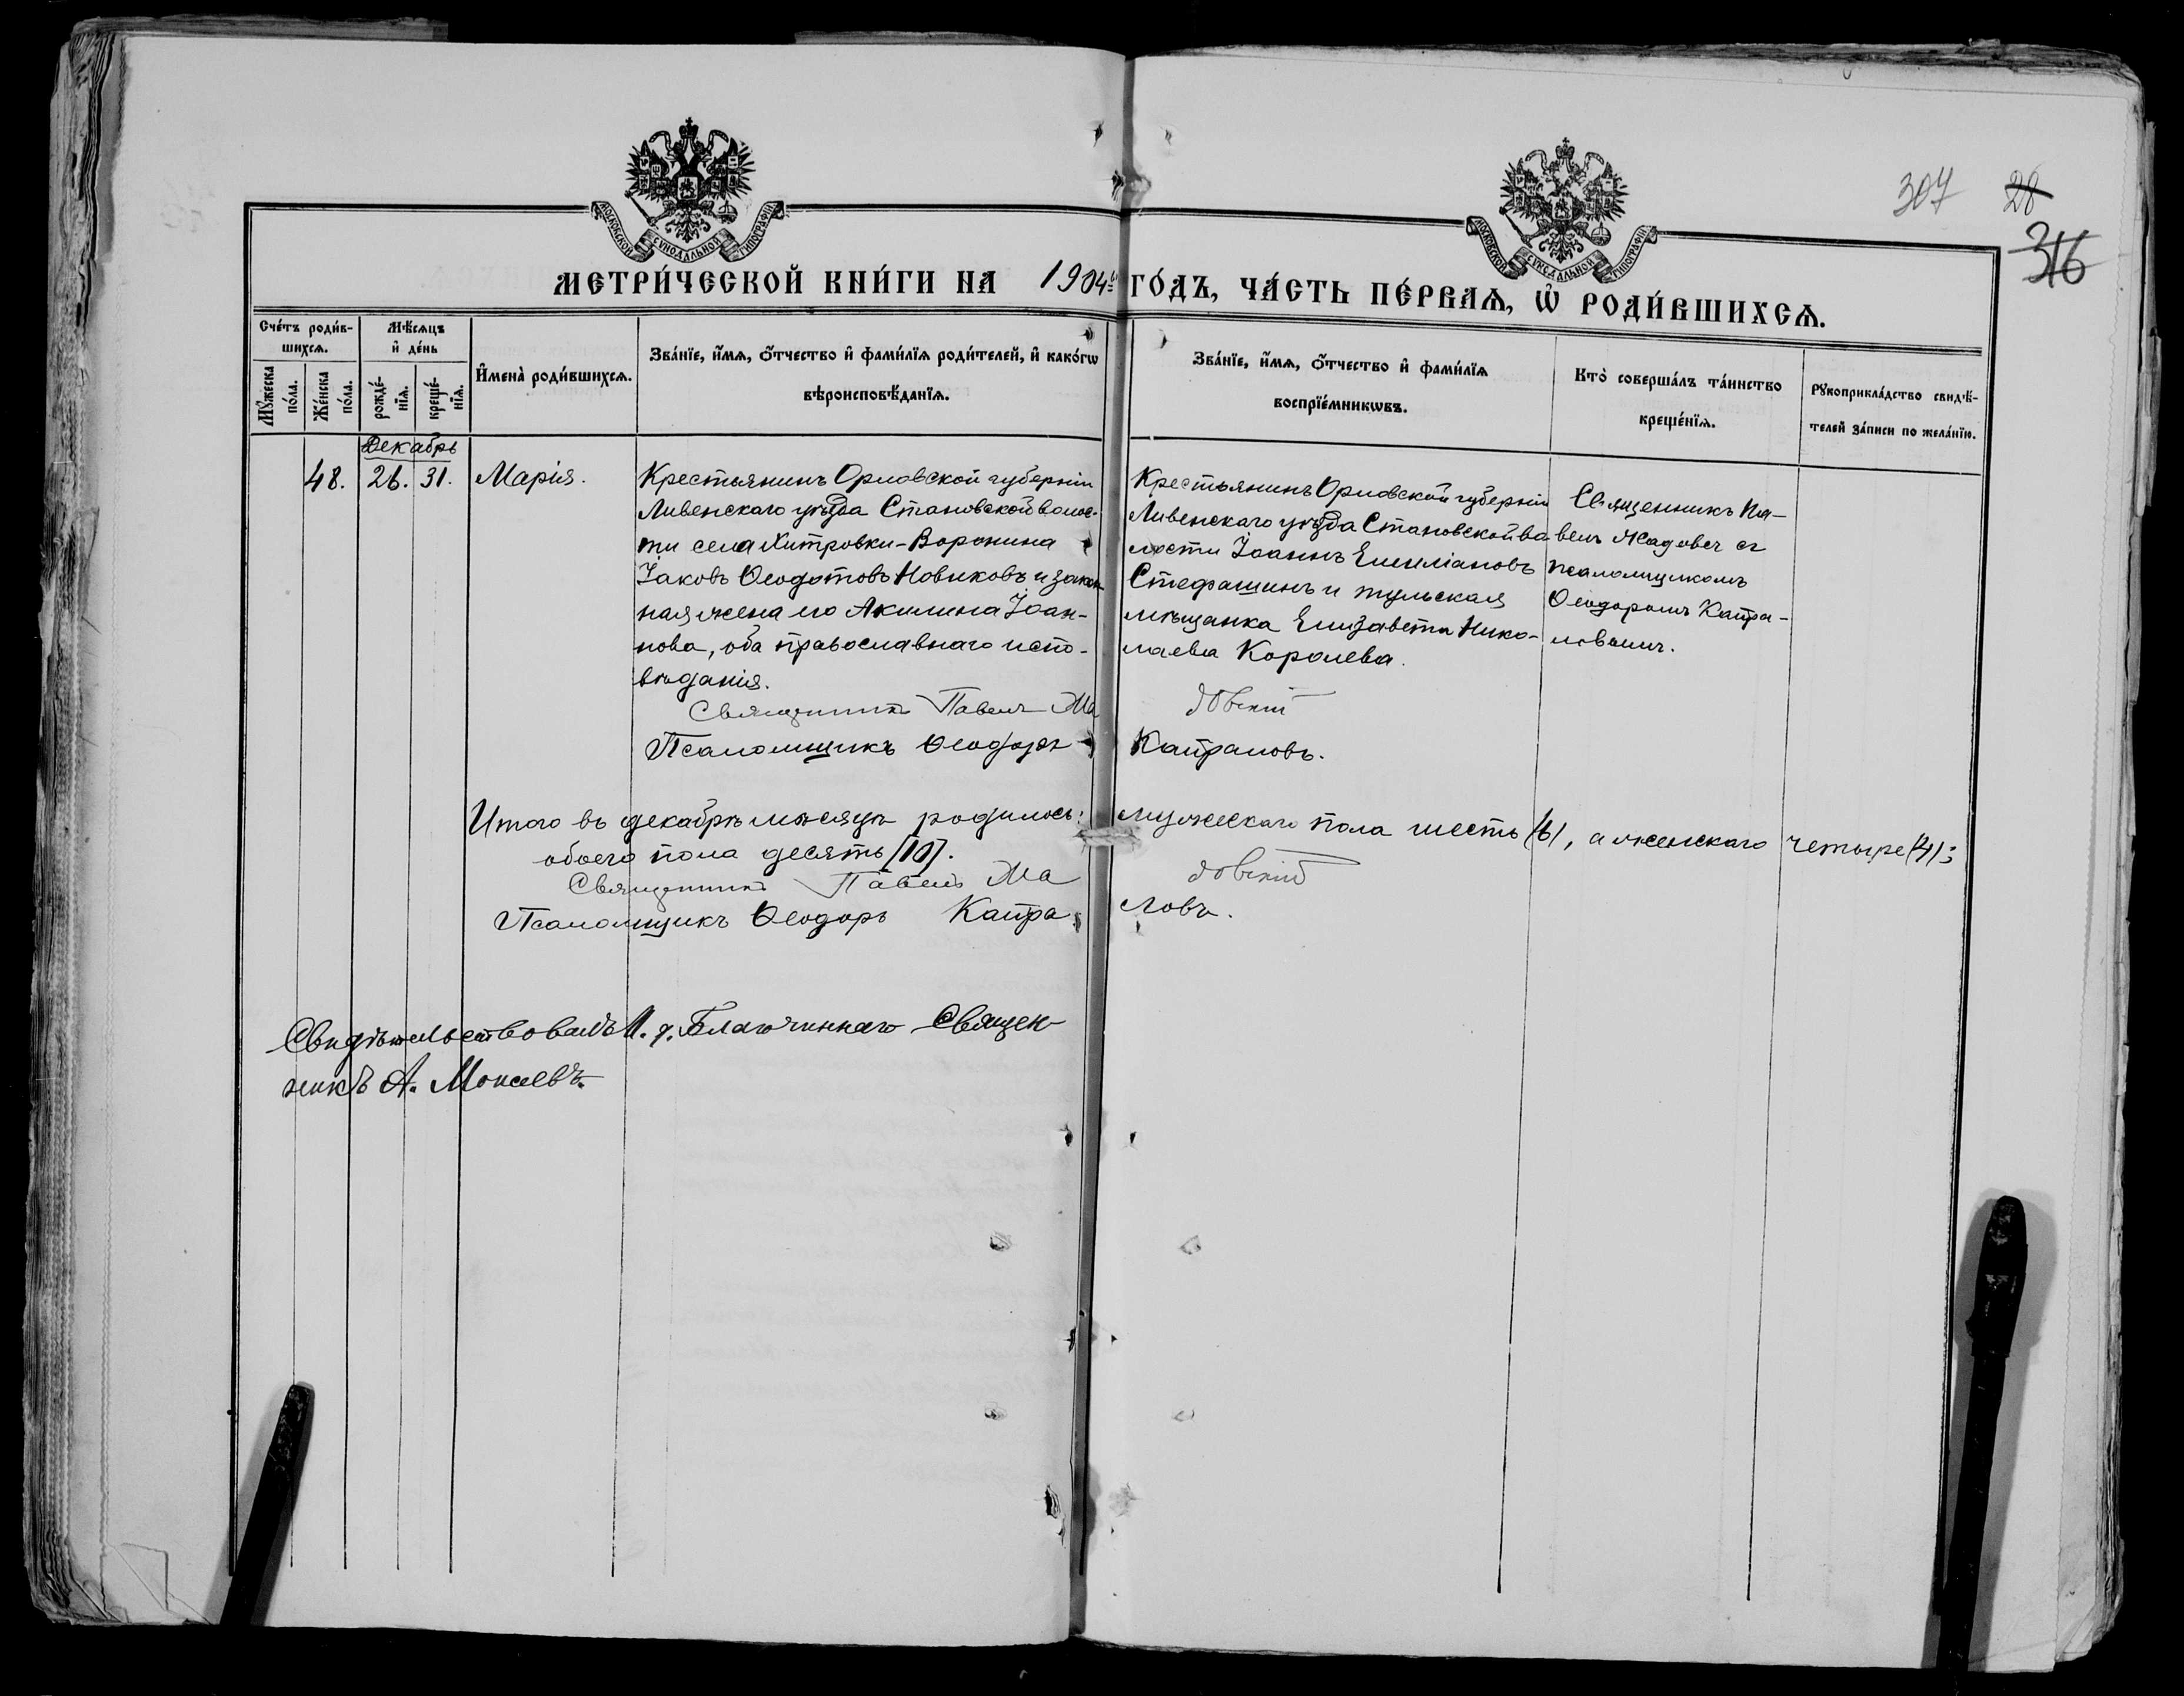 307 28
316
МОСКОВСКОЙ СѴНОДАЛЬНОЙ ТИПОГРАФІИ
МОСКОВСКОЙ СѴНОДАЛЬНОЙ ТИПОГРАФІИ
МЕТРИ́ЧЕСКОЙ КНИ́ГИ НА 1904й ГО́ДЪ, ЧА́СТЬ ПЕ́РВАѦ, Ѽ РОДИ́ВШИХСѦ.
Сче́тъ роди́в-
шихсѧ.
Мꙋ́жеска
по́ла.
Же́нска
по́ла.
Мѣ́сѧцъ
и҆ де́нь
рожде́-
нїѧ.
креще́-
нїѧ.
И҆мена̀ роди́вшихсѧ.
Зва́нїе, и҆́мѧ, ѻ҆́тчество и҆ фами́лїѧ роди́телей, и҆ како́гѡ
вѣроисповѣ́данїѧ.
Зва́нїе, и҆́мѧ, ѻ҆́тчество и҆ фами́лїѧ
воспрїе́мникѡвъ.
Кто̀ соверша́лъ та́инство
креще́нїѧ.
Рꙋкоприкла́дство свидѣ́-
телей за́писи по жела́нїю.
Декабрь
48. 26. 31. Марія.
Крестьянинъ Орловской губерніи
Ливенскаго уѣзда Становской волос-
ти села Хитровки-Воронина
Іаковъ Ѳеодотовъ Новиковъ и закон
ная жена его Акилина Іоан-
нова, оба православнаго испо-
вѣданія.
Крестьянинъ Орловской губерніи
Ливенскаго уѣзда Становской во
лости Іоаннъ Емиліановъ
Стефашинъ и тульская
мѣщанка Елизавета Нико-
лаева Королева.
Священникъ Па-
велъ съ
псаломщикомъ
Ѳеодоромъ Капра-
ловымъ.
Священникъ Павелъ
Псаломщикъ Ѳеодоръ Капраловъ.
Итого въ декабрѣ мѣсяцѣ родилось: мужескаго пола шесть (6), а женскаго четыре (4);
обоего пола десять [10].
Священникъ Павелъ
Псаломщикъ Ѳеодоръ Капраловъ.
Свидѣтельствовалъ И. д. Благочиннаго Священ-
никъ А. Моисеевъ.